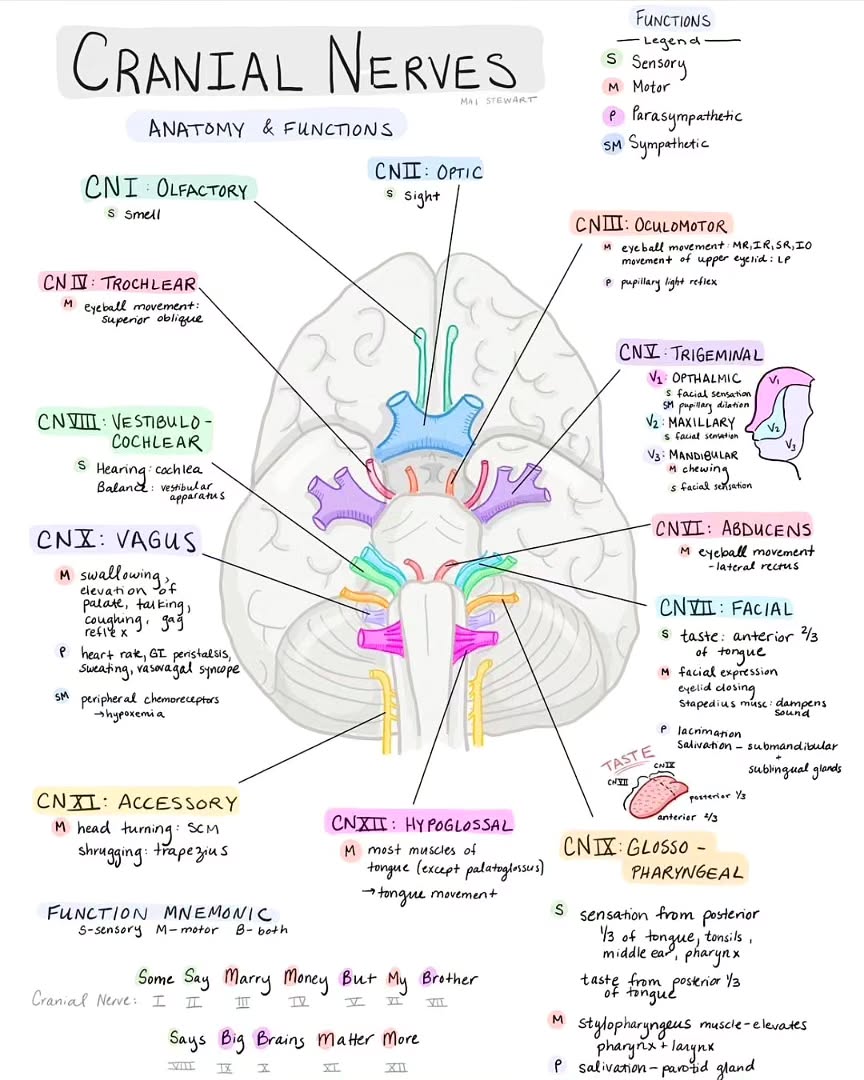 CRANIAL NERVES
MAI STEWART
ANATOMY & FUNCTIONS
FUNCTIONS
Legend
S Sensory
M Motor
P Parasympathetic
SM Sympathetic
CN I: OLFACTORY
S Smell
CN II: OPTIC
S Sight
CN III: OCULOMOTOR
M eyeball movement: MR, IR, SR, IO
movement of upper eyelid: LP
P pupillary light reflex
CN IV: TROCHLEAR
M eyeball movement:
superior oblique
CN V: TRIGEMINAL
V1: OPTHALMIC
S facial sensation
SM pupillary dilation
V2: MAXILLARY
S facial sensation
V3: MANDIBULAR
M chewing
S facial sensation
V1
V2
V3
CN VIII: VESTIBULO-
COCHLEAR
S Hearing: cochlea
Balance: vestibular
apparatus
CN VI: ABDUCENS
M eyeball movement
-lateral rectus
CN X: VAGUS
M swallowing,
elevation of
palate, talking,
coughing, gag
reflex
P heart rate, GI peristalsis,
sweating, vasovagal syncope
SM peripheral chemoreceptors
→hypoxemia
CN VII: FACIAL
S taste: anterior 2/3
of tongue
M facial expression
eyelid closing
Stapedius musc: dampens
sound
P lacrimation
Salivation - submandibular
+
sublingual glands
TASTE
CN IX
CN VII
posterior 1/3
anterior 2/3
CN XI: ACCESSORY
M head turning: SCM
shrugging: trapezius
CN XII: HYPOGLOSSAL
M most muscles of
tongue (except palatoglossus)
→ tongue movement
CN IX: GLOSSO-
PHARYNGEAL
S sensation from posterior
1/3 of tongue, tonsils,
middle ear, pharynx
taste from posterior 1/3
of tongue
M stylopharyngeus muscle - elevates
pharynx + larynx
P salivation - parotid gland
FUNCTION MNEMONIC
S-sensory M-motor B-both
Some Say Marry Money But My Brother
Cranial Nerve: I II III IV V VI VII
Says Big Brains Matter More
VIII IX X XI XII